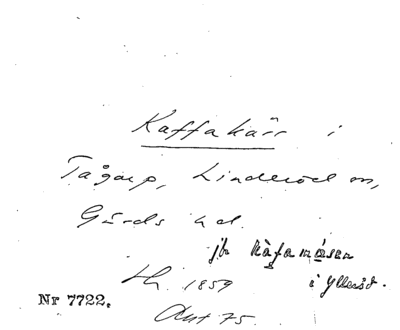 Kaffakärr i
Tågarp, Linderöd sn,
Gärds hd.
jfr Kåfamåsen
i Ylleröd.
LK. 1859
Ant 75.
Nr 7722.